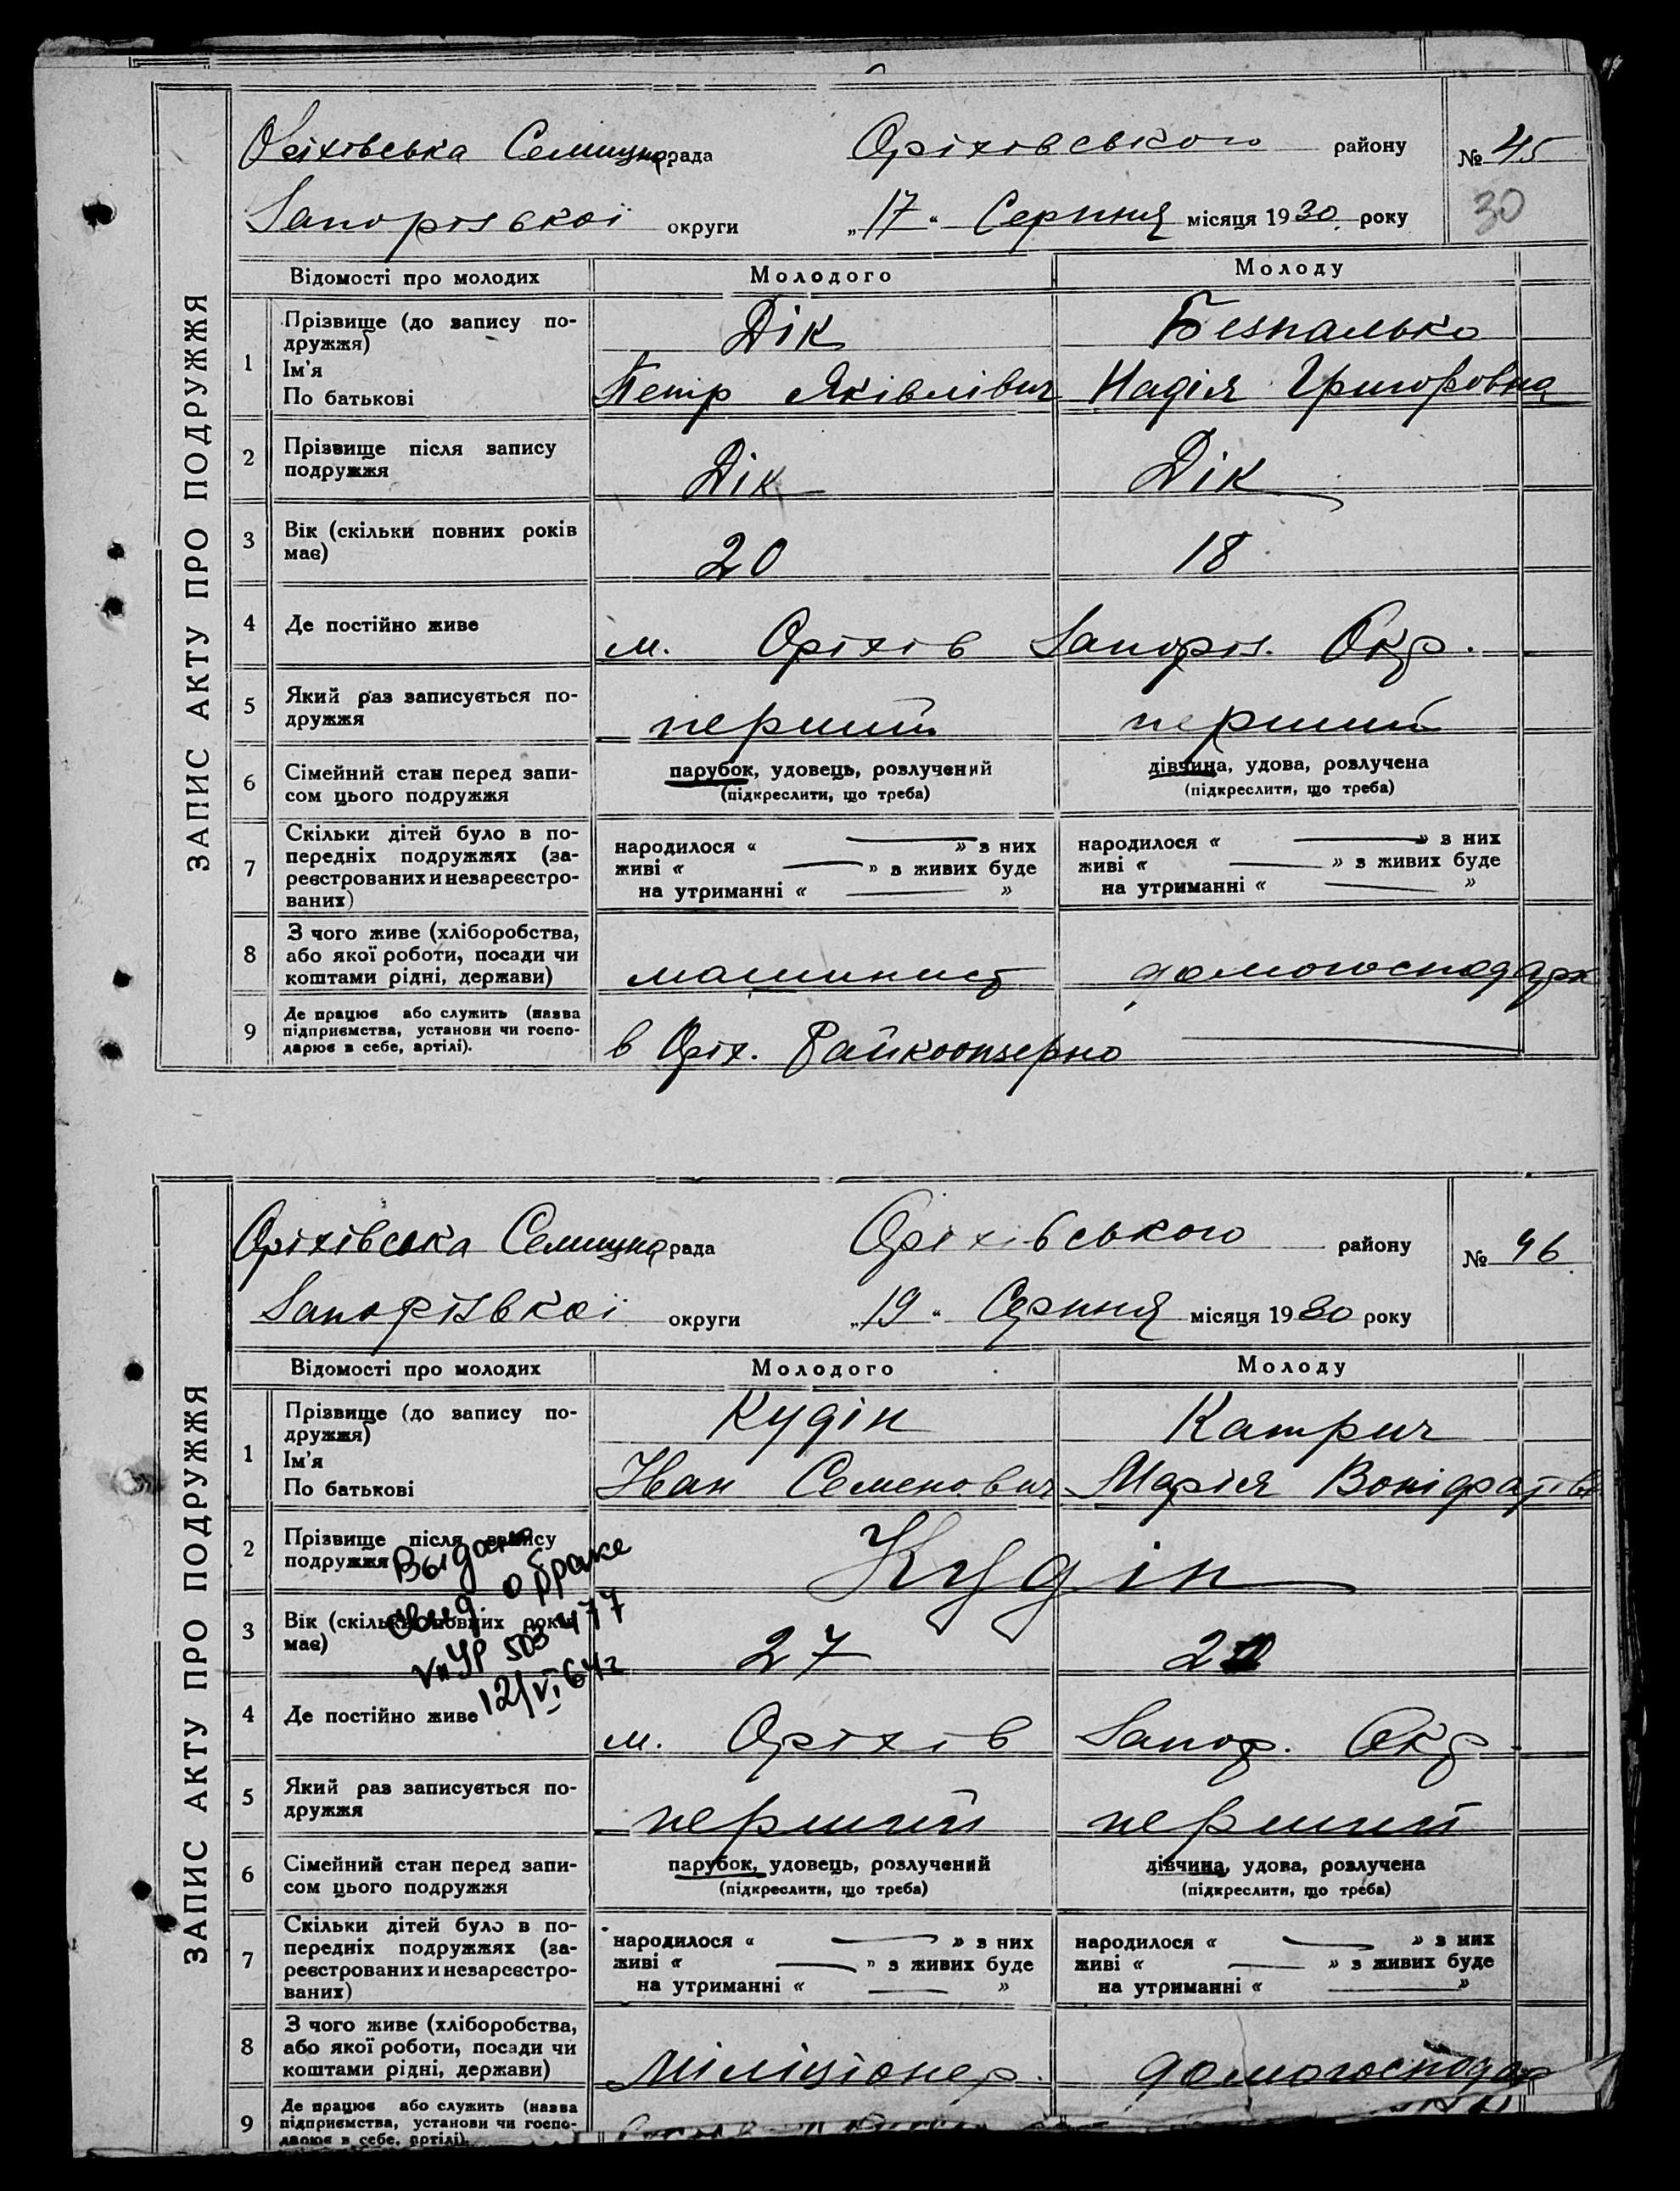 ЗАПИС АКТУ ПРО ПОДРУЖЖЯ
Оріхівська Селищна рада Оріхівського району № 45
Запорізької округи „17“ Серпня місяця 1930 року 30
Відомості про молодих Молодого Молоду
1 Прізвище (до запису по-
дружжя) Дік Безпалько
Ім'я
По батькові Петр Яківлівич Надія Григоровна
2 Прізвище після запису
подружжя Дік Дік
3 Вік (скільки повних років
має) 20 18
4 Де постійно живе м. Оріхів Запоріз. Окр.
5 Який раз записується по-
дружжя перший перший
6 Сімейний стан перед запи-
сом цього подружжя
парубок, удовець, розлучений дівчина, удова, розлучена
(підкреслити, що треба) (підкреслити, що треба)
7 Скільки дітей було в по-
передніх подружжях (за-
реєстрованих и незареєстро-
ваних)
народилося « » з них народилося « » з них
живі « » з живих буде живі « » з живих буде
на утриманні « » на утриманні « »
8 З чого живе (хліборобства,
або якої роботи, посади чи
коштами рідні, держави) машинист домогосподарк
9 Де працює або служить (назва
підприємства, установи чи госпо-
дарює в себе, артілі). в Оріх. Райкоопзерно
ЗАПИС АКТУ ПРО ПОДРУЖЖЯ
Оріхівська Селищна рада Оріхівського району № 46
Запорізької округи „19“ Серпня місяця 1930 року
Відомості про молодих Молодого Молоду
1 Прізвище (до запису по-
дружжя) Кудін Катрич
Ім'я
По батькові Иван Семенович Марія Воніфатіев
2 Прізвище після запису
подружжя Кудін
Выдано
свид. о браке
УР 503477
12/VI 64г
3 Вік (скільки повних років
має) 27 20
4 Де постійно живе м. Оріхів Запор. Окр.
5 Який раз записується по-
дружжя перший перший
6 Сімейний стан перед запи-
сом цього подружжя
парубок, удовець, розлучений дівчина, удова, розлучена
(підкреслити, що треба) (підкреслити, що треба)
7 Скільки дітей було в по-
передніх подружжях (за-
реєстрованих и незареєстро-
ваних)
народилося « » з них народилося « » з них
живі « » з живих буде живі « » з живих буде
на утриманні « » на утриманні « »
8 З чого живе (хліборобства,
або якої роботи, посади чи
коштами рідні, держави) міліціонер. домогосподар
9 Де працює або служить (назва
підприємства, установи чи госпо-
дарює в себе, артілі).